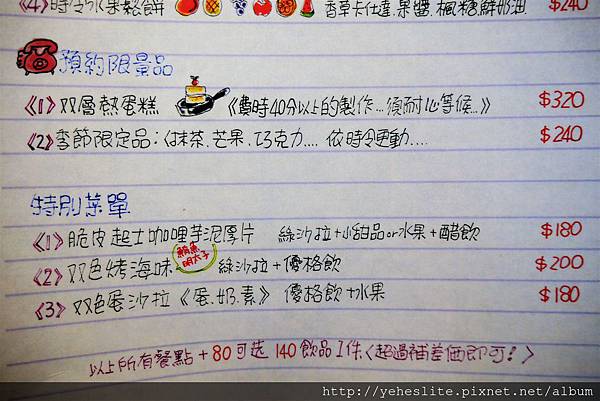 《4》時令水果鬆餅 香草卡仕達.果醬.楓糖.鮮奶油 $240
預約限量品
《1》双層熱蛋糕 《費時40分以上的製作...須耐心等候...》 $320
《2》季節限定品:〈抹茶.芒果.巧克力.... 依時令運動.... $240
特別菜單
《1》脆皮起士咖哩芋泥厚片 綠沙拉+小甜品or水果+醋飲 $180
《2》双色烤海味 鮪魚 明太子 綠沙拉+優格飲 $200
《3》双色蛋沙拉《蛋.奶.素》 優格飲+水果 $180
以上所有餐點+80可选140飲品1件〈超過補差価即可!〉
http://yeheslite.pixnet.net/album